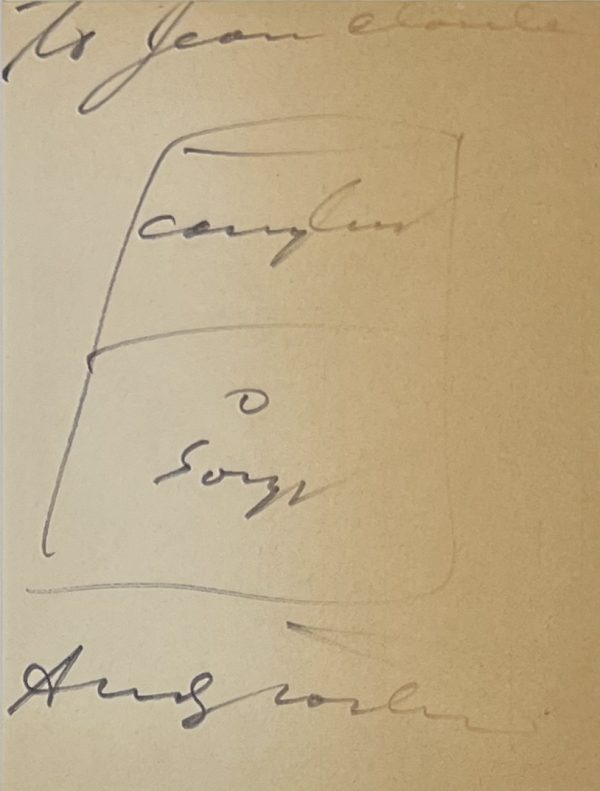 To Jean claude
Campbells
O
Soup
Andy Warhol